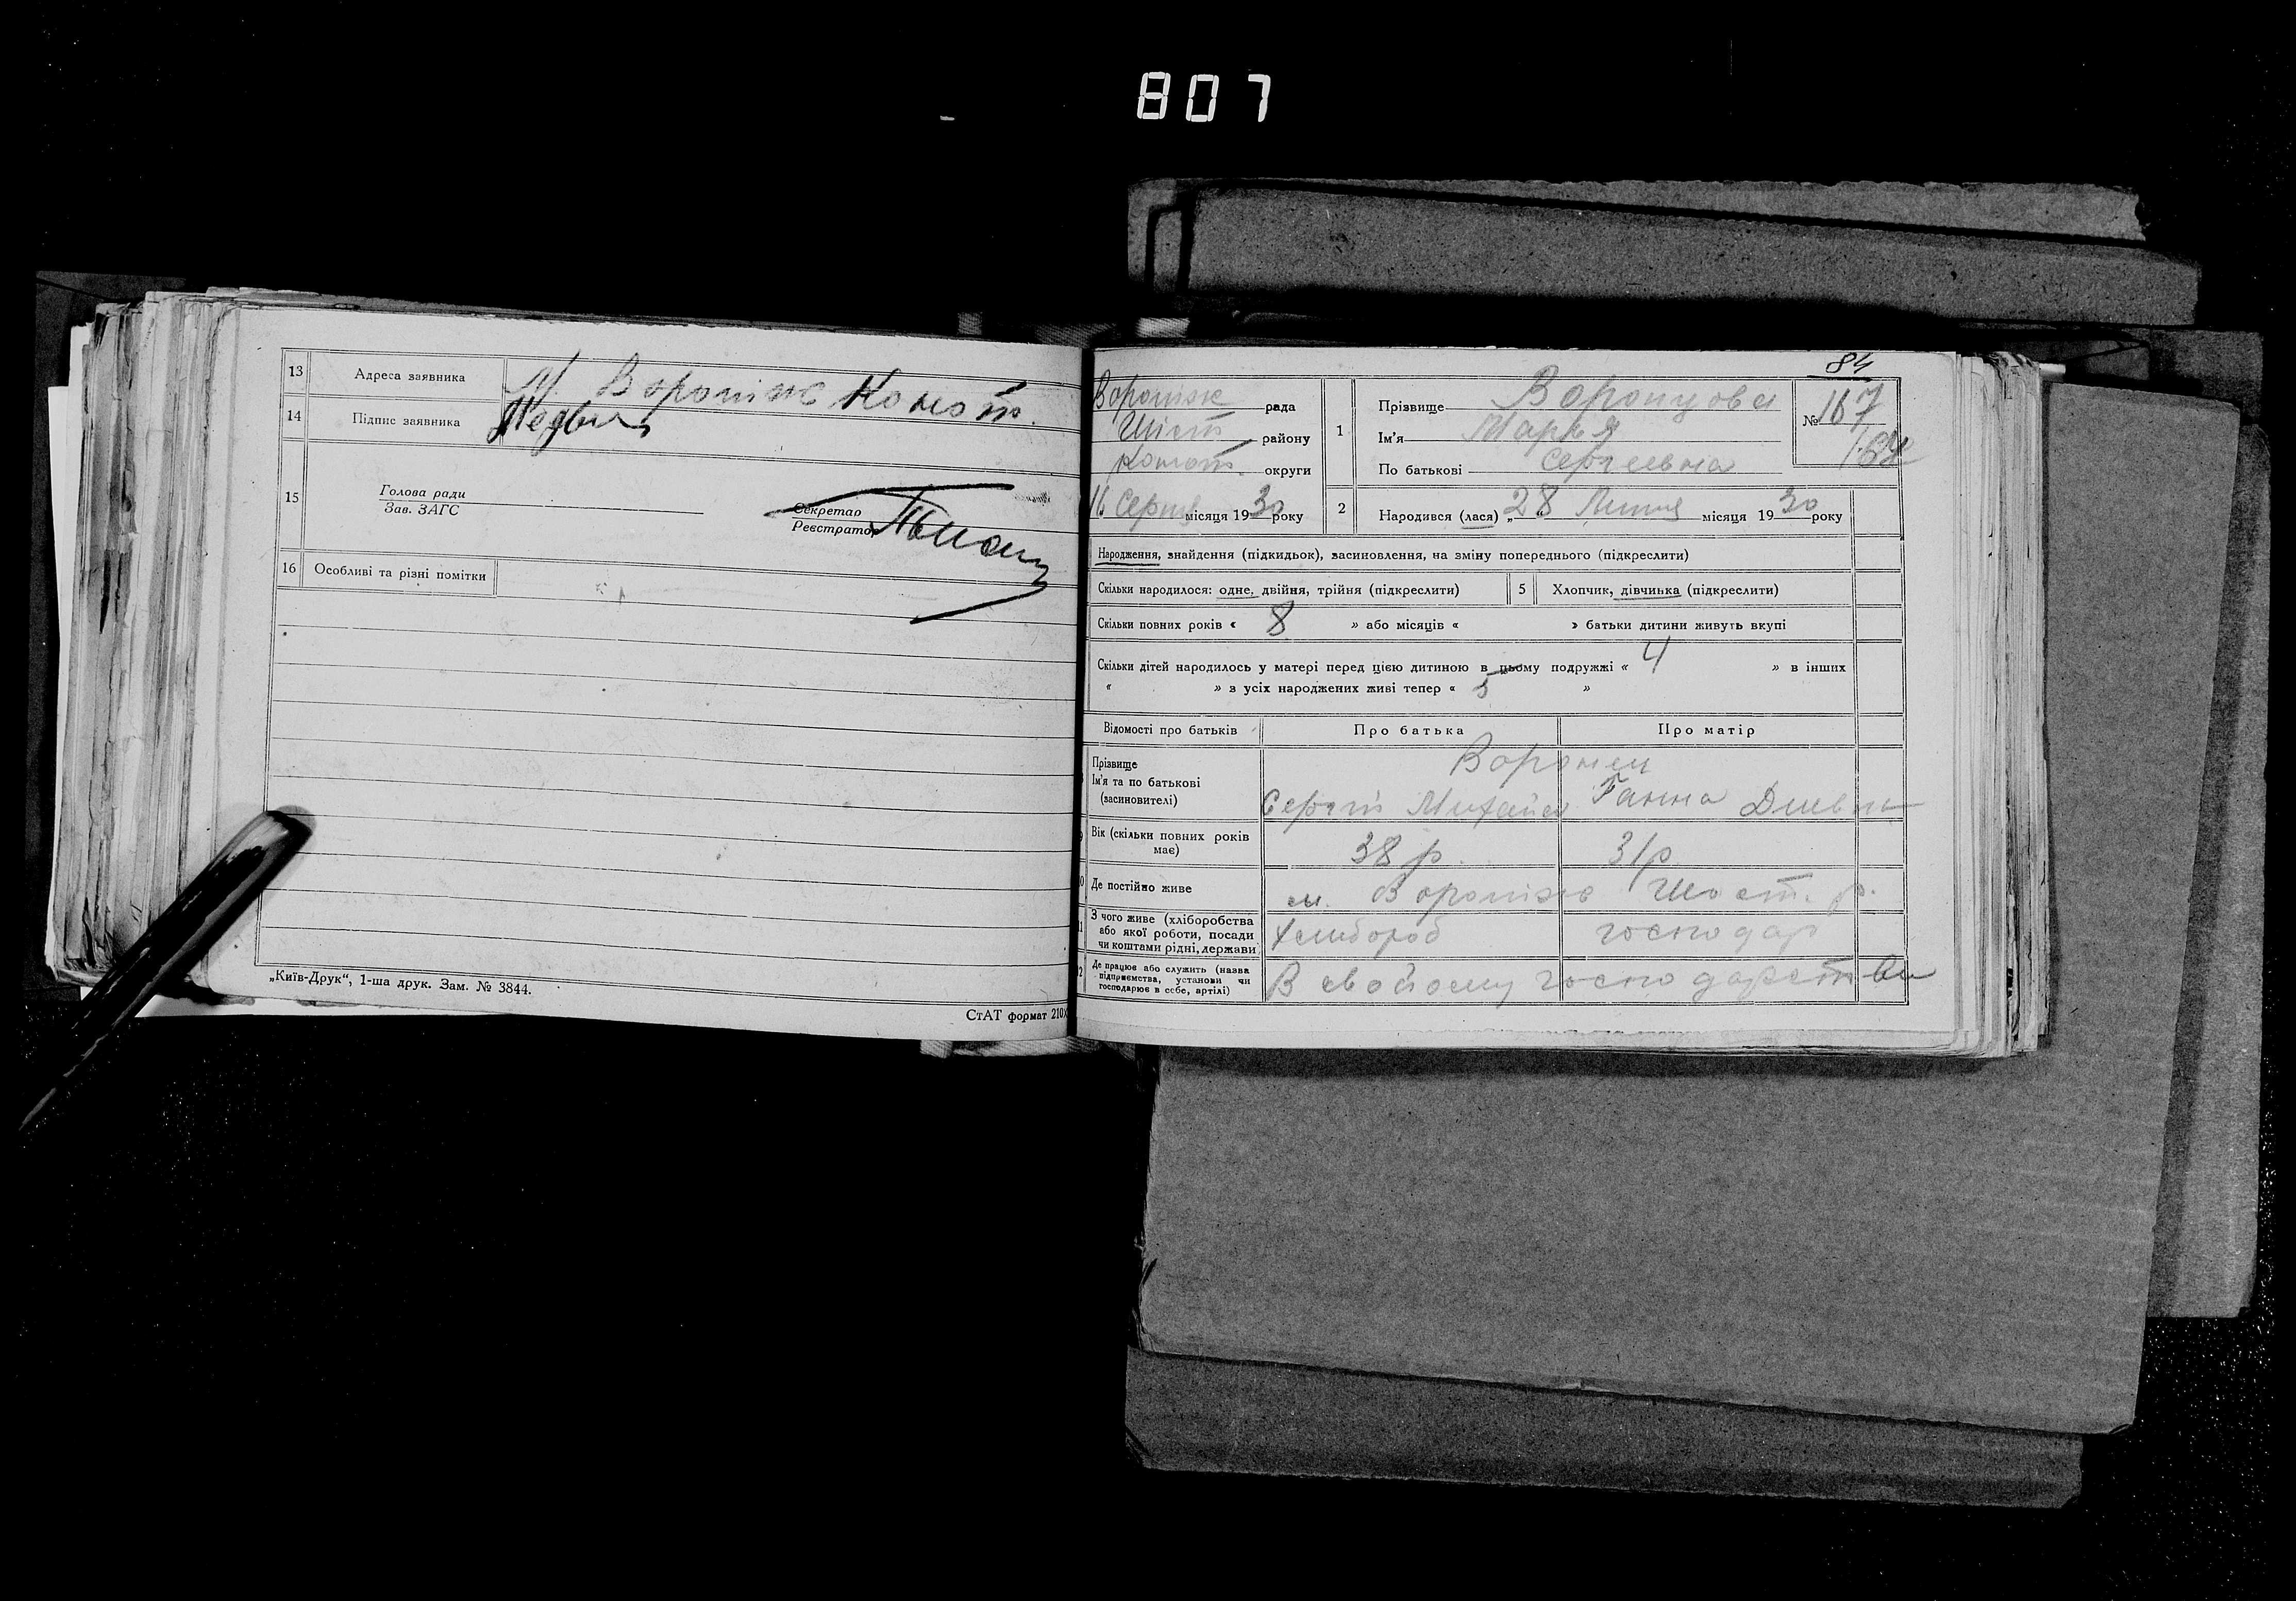 807
13 Адреса заявника М. Вороніж Конот.
14 Підпис заявника
15 Голова ради
Зав. ЗАГС
Секретар
Реєстратор
16 Особливі та різні помітки
„Київ-Друк“, 1-ша друк. Зам. № 3844.
СтАТ формат 210
84
Вороніж рада
району
Конот. округи
16 Серпня місяця 1930 року
1 Прізвище Воронцова
Ім'я Марья
По батькові Сергеевна
№ 167
2 Народився (лася) „28 Липня місяця 1930 року
Народження, знайдення (підкидьок), засиновлення, на зміну попереднього (підкреслити)
Скільки народилося: одне, двійня, трійня (підкреслити) 5 Хлопчик, дівчинка (підкреслити)
Скільки повних років « 8 » або місяців « » батьки дитини живуть вкупі
Скільки дітей народилось у матері перед цією дитиною в цьому подружжі « 4 » в інших
« » з усіх народжених живі тепер « 5 »
Відомості про батьків Про батька Про матір
Прізвище
Ім'я та по батькові
(засиновителі)
Воронец
Сергій Михайл Ганна
Вік (скільки повних років
має)
38 р. 31 р
Де постійно живе м. Вороніж Шост. р.
З чого живе (хліборобства
або якої роботи, посади
чи коштами рідні, держави
Хлибороб господар
Де працює або служить (назва
підприємства, установи чи
господарює в себе, артілі)
В свойому господарстви